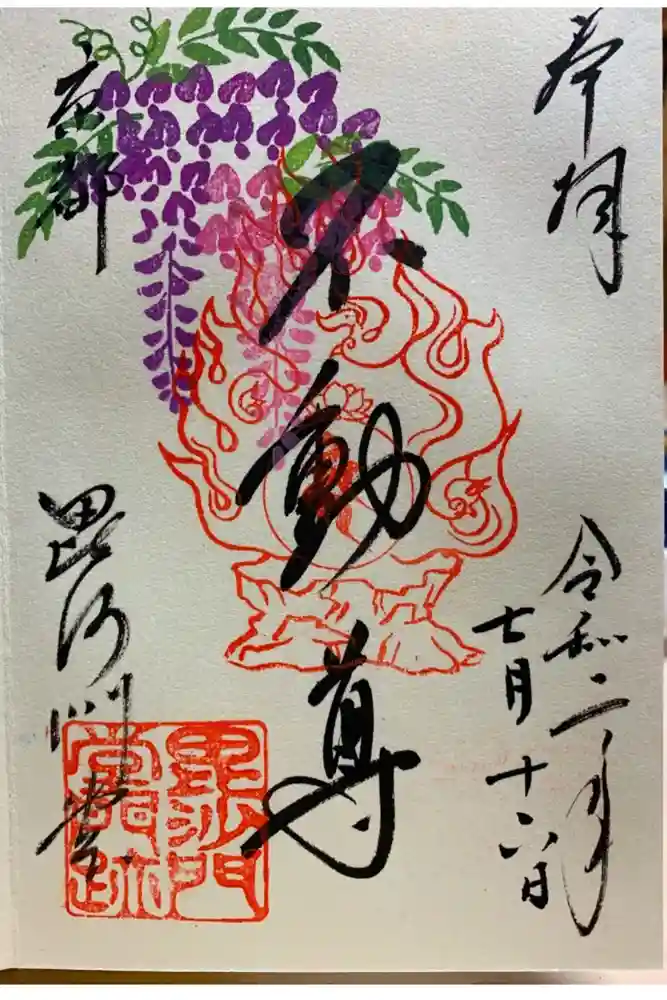 奉拝
令和二年
七月十六日
不動尊
京都
毘沙門堂
毘沙門
堂門跡